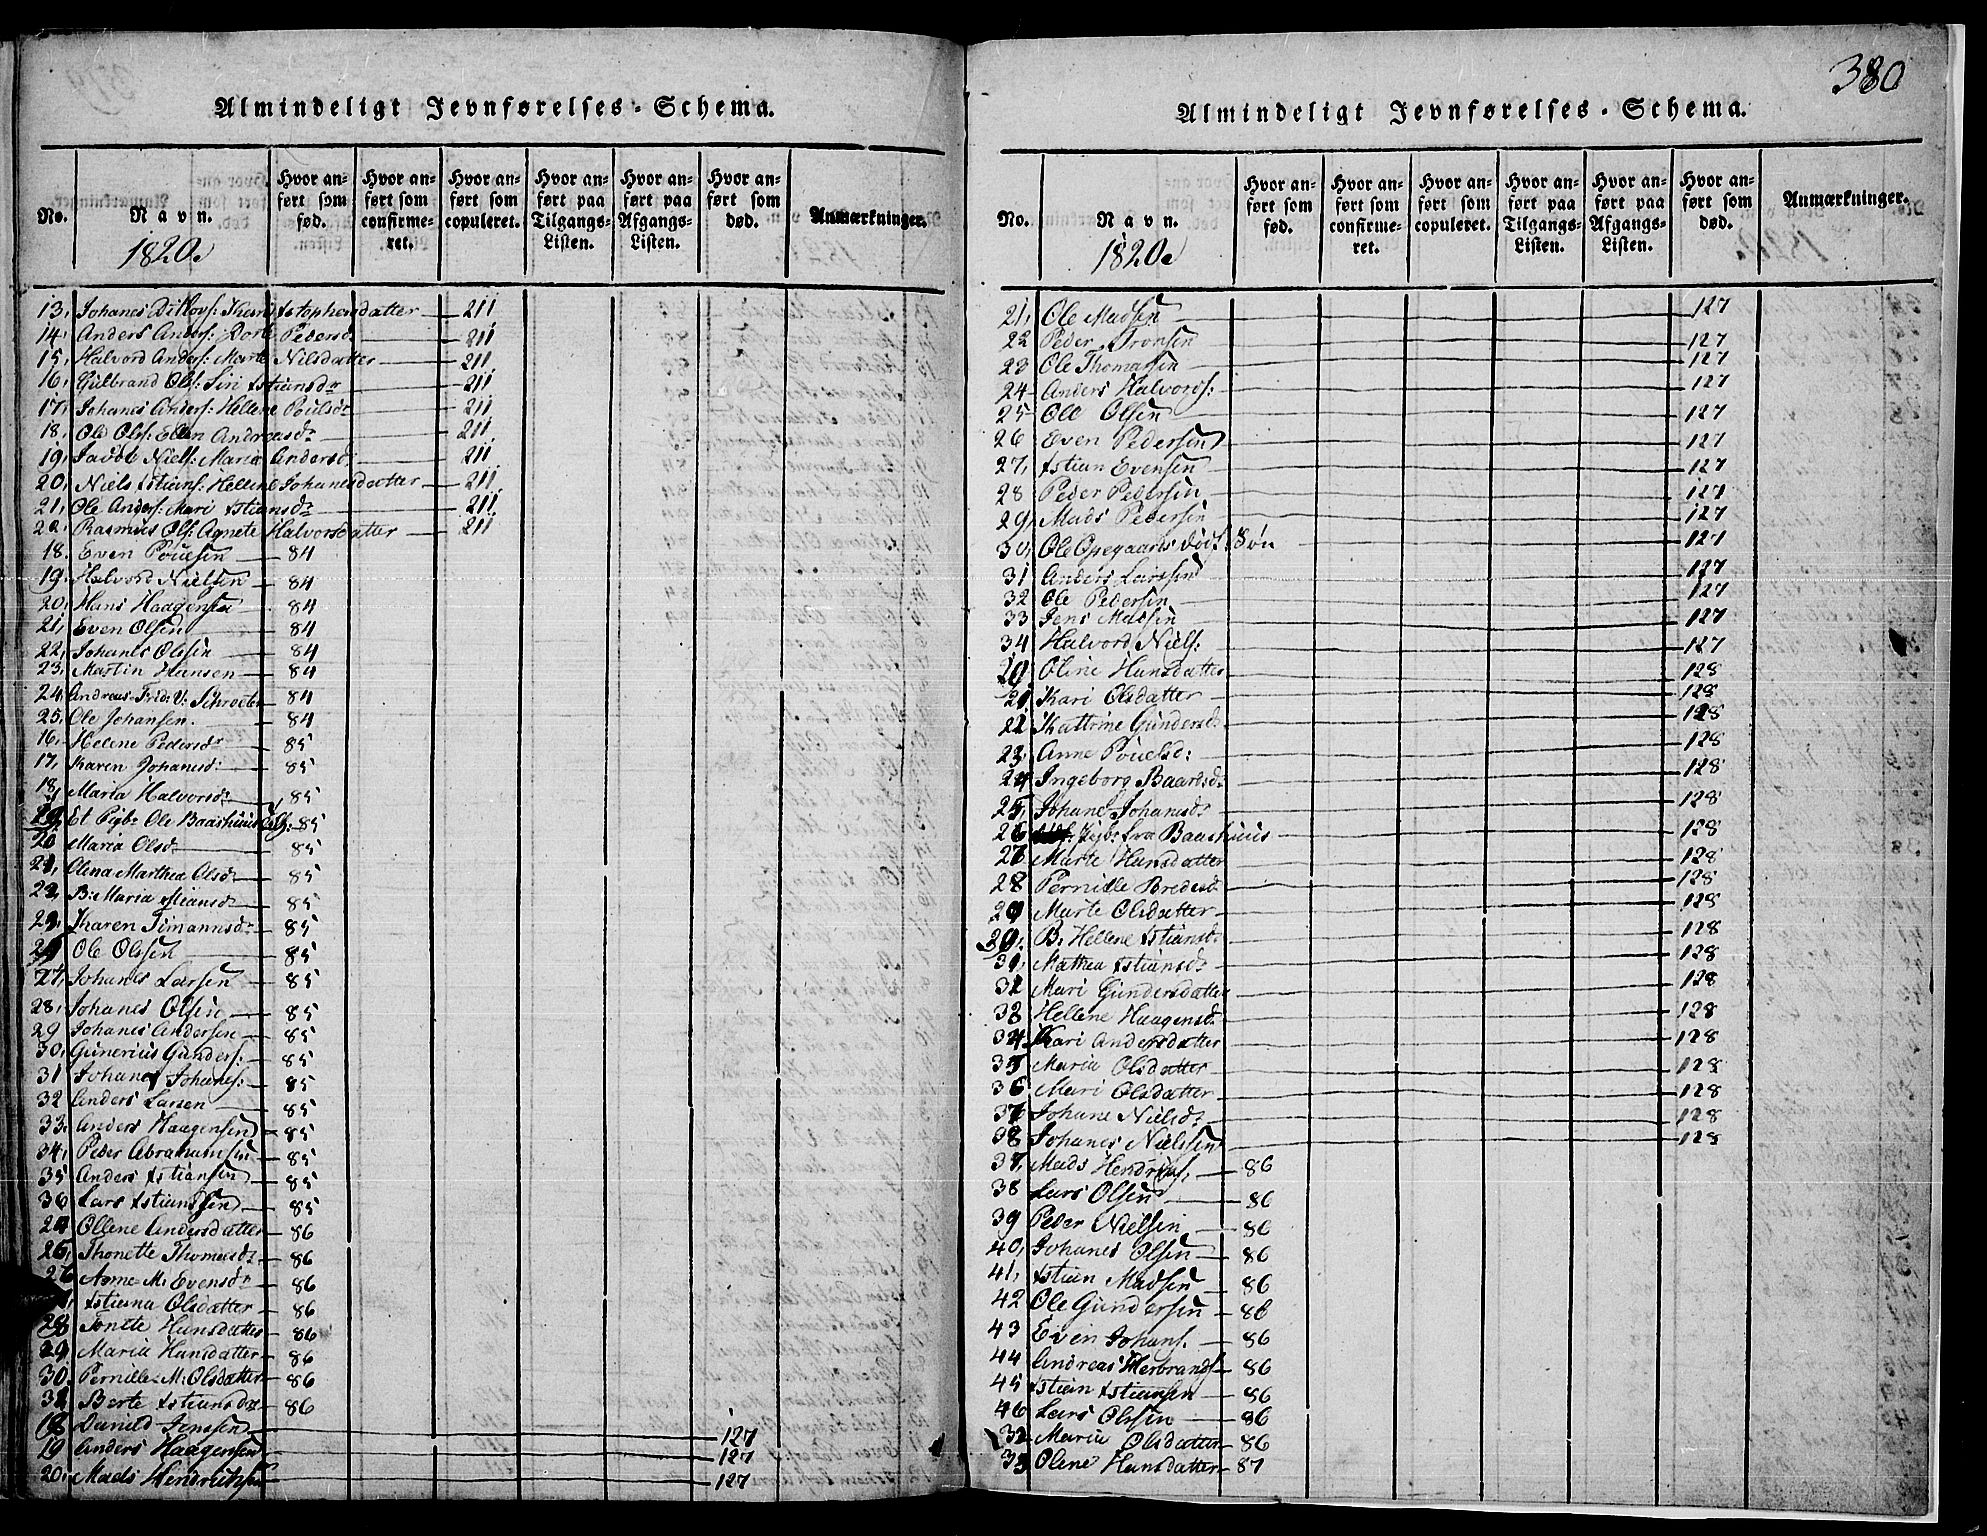 380
Almindeligt Jevnførelses-Schema.
No.
Navn.
Hvor anført som fød.
Hvor anført som confirmeret.
Hvor anført som copuleret.
Hvor anført paa Tilgangs-Listen.
Hvor anført paa Afgangs-Listen.
Hvor anført som død.
Anmærkninger.
1820.
13, Johanes Ditlovs: 211
14, Anders Anders: Dorte Pedersd 211
15, Halvord Anders: Marte Nilsdatter 211
16, Gulbrand Ols: Siri xstiansdr 211
17, Johanes Anders: Hellene Poulsdr 211
18, Ole Ols: Ellen Andreasdr 211
19, Jacob Niels: Maria Andersd: 211
20, Niels xstians: Hellene Johanesdatter 211
21, Ole Anders: Mari xstiansdr 211
22, Rasmus Ols: Agnete Halvorsdatter 211
18. Even Pouelsen 84
19. Halvord Nielsen 84
20, Hans Haagensen 84
21, Even Olsen 84
22, Johanes Olssen 84
23. Martin Hansen 84
24, Andreas Fridr: V: Schroeter 84
25, Ole Johansen. 84
16, Helene Pedersdr 85
17, Karen Johanisd: 85
18, Maria Halvorsdr 85
19, Et Pigb: Ole Baashuus 85
20 Maria Olsd 85
21, Olena Marthea Olsdr 85
22, B: Maria xstiansdr 85
23, Karen Timannsdr 85
Ole Olssen 85
27, Johanes Larsen 85
28, Johanes Olsen 85
29 Johanes Andersen 85
30, Gunerius Gunders: 85
31 Johanes Johanes: 85
32 Anders Larsen 85
33. Anders Haagensen 85
34, Peder Abrahamsen 85
35 Anders xstiansen 85
36 Lars xstianssen 85
24 Ollene Andersdatter 86
25, Thonette Thomesdr 86
26 Anne M: Evensdr 86
xstiana Olsdatter 86
28 Tonette Hansdatter 86
29 Maria Hansdatter 86
30. Pernille M: Olsdatter 86
31 Berte xstiansdr 86
18 Daniel Jenssen 127
19 Anders Haagensen 127
20. Mads Hendrichsen 127
Almindeligt Jevnførelses-Schema.
No.
Navn.
Hvor anført som fød.
Hvor anført som confirmeret.
Hvor anført som copuleret.
Hvor anført paa Tilgangs-Listen.
Hvor anført paa Afgangs-Listen.
Hvor anført som død.
Anmærkninger.
1820.
21, Ole Madsen 127
22 Peder Tronsen 127
23 Ole Thomassen 127
24 Anders Halvords: 127
25 Ole Olsen 127
26 Even Pedersen 127
27, xstian Evensen 127
28 Peder Pedersen 127
29, Mads Pedersen 127
30, Ole Opegaards Søn 127
31 Anders Larssen 127
32 Ole Pedersen 127
33 Jens Madsen 127
34 Halvord Niels: 127
20, Oline Hansdatter 128
21 Kari Olsdatter 128
22 Kattrine Gundersdr 128
23, Anne Pouelsd: 128
24 Ingeborg Baardsdr 128
25, Johane Johanesdr 128
26 Pigb: fra Baashuus 128
27 Marte Hansdatter 128
28 Pernille Bredesdr 128
29 Marte Olsdatter 128
30. B: Hellene xstiansdr 128
31, Mathea xstiansdr 128
32 Mari Gundersdatter 128
33 Hellene Haagensdr 128
34. Kari Andersdatter 128
35 Maria Olsdatter 128
36 Mari Olsdatter 128
37 Johane Nielsdr 128
38 Johanes Nielssen 128
37, Mads Hendrichs: 86
38 Lars Olsen 86
39 Peder Nielsen 86
40, Johanes Olsen 86
41, xstian Madsen 86
42 Ole Gundersen 86
43 Even Johans. 86
44 Andreas Herbrands 86
45 xstian xstiansen 86
46 Lars Olssen 86
32 Maria Olsdatter 86
33 Olene Hansdatter 87